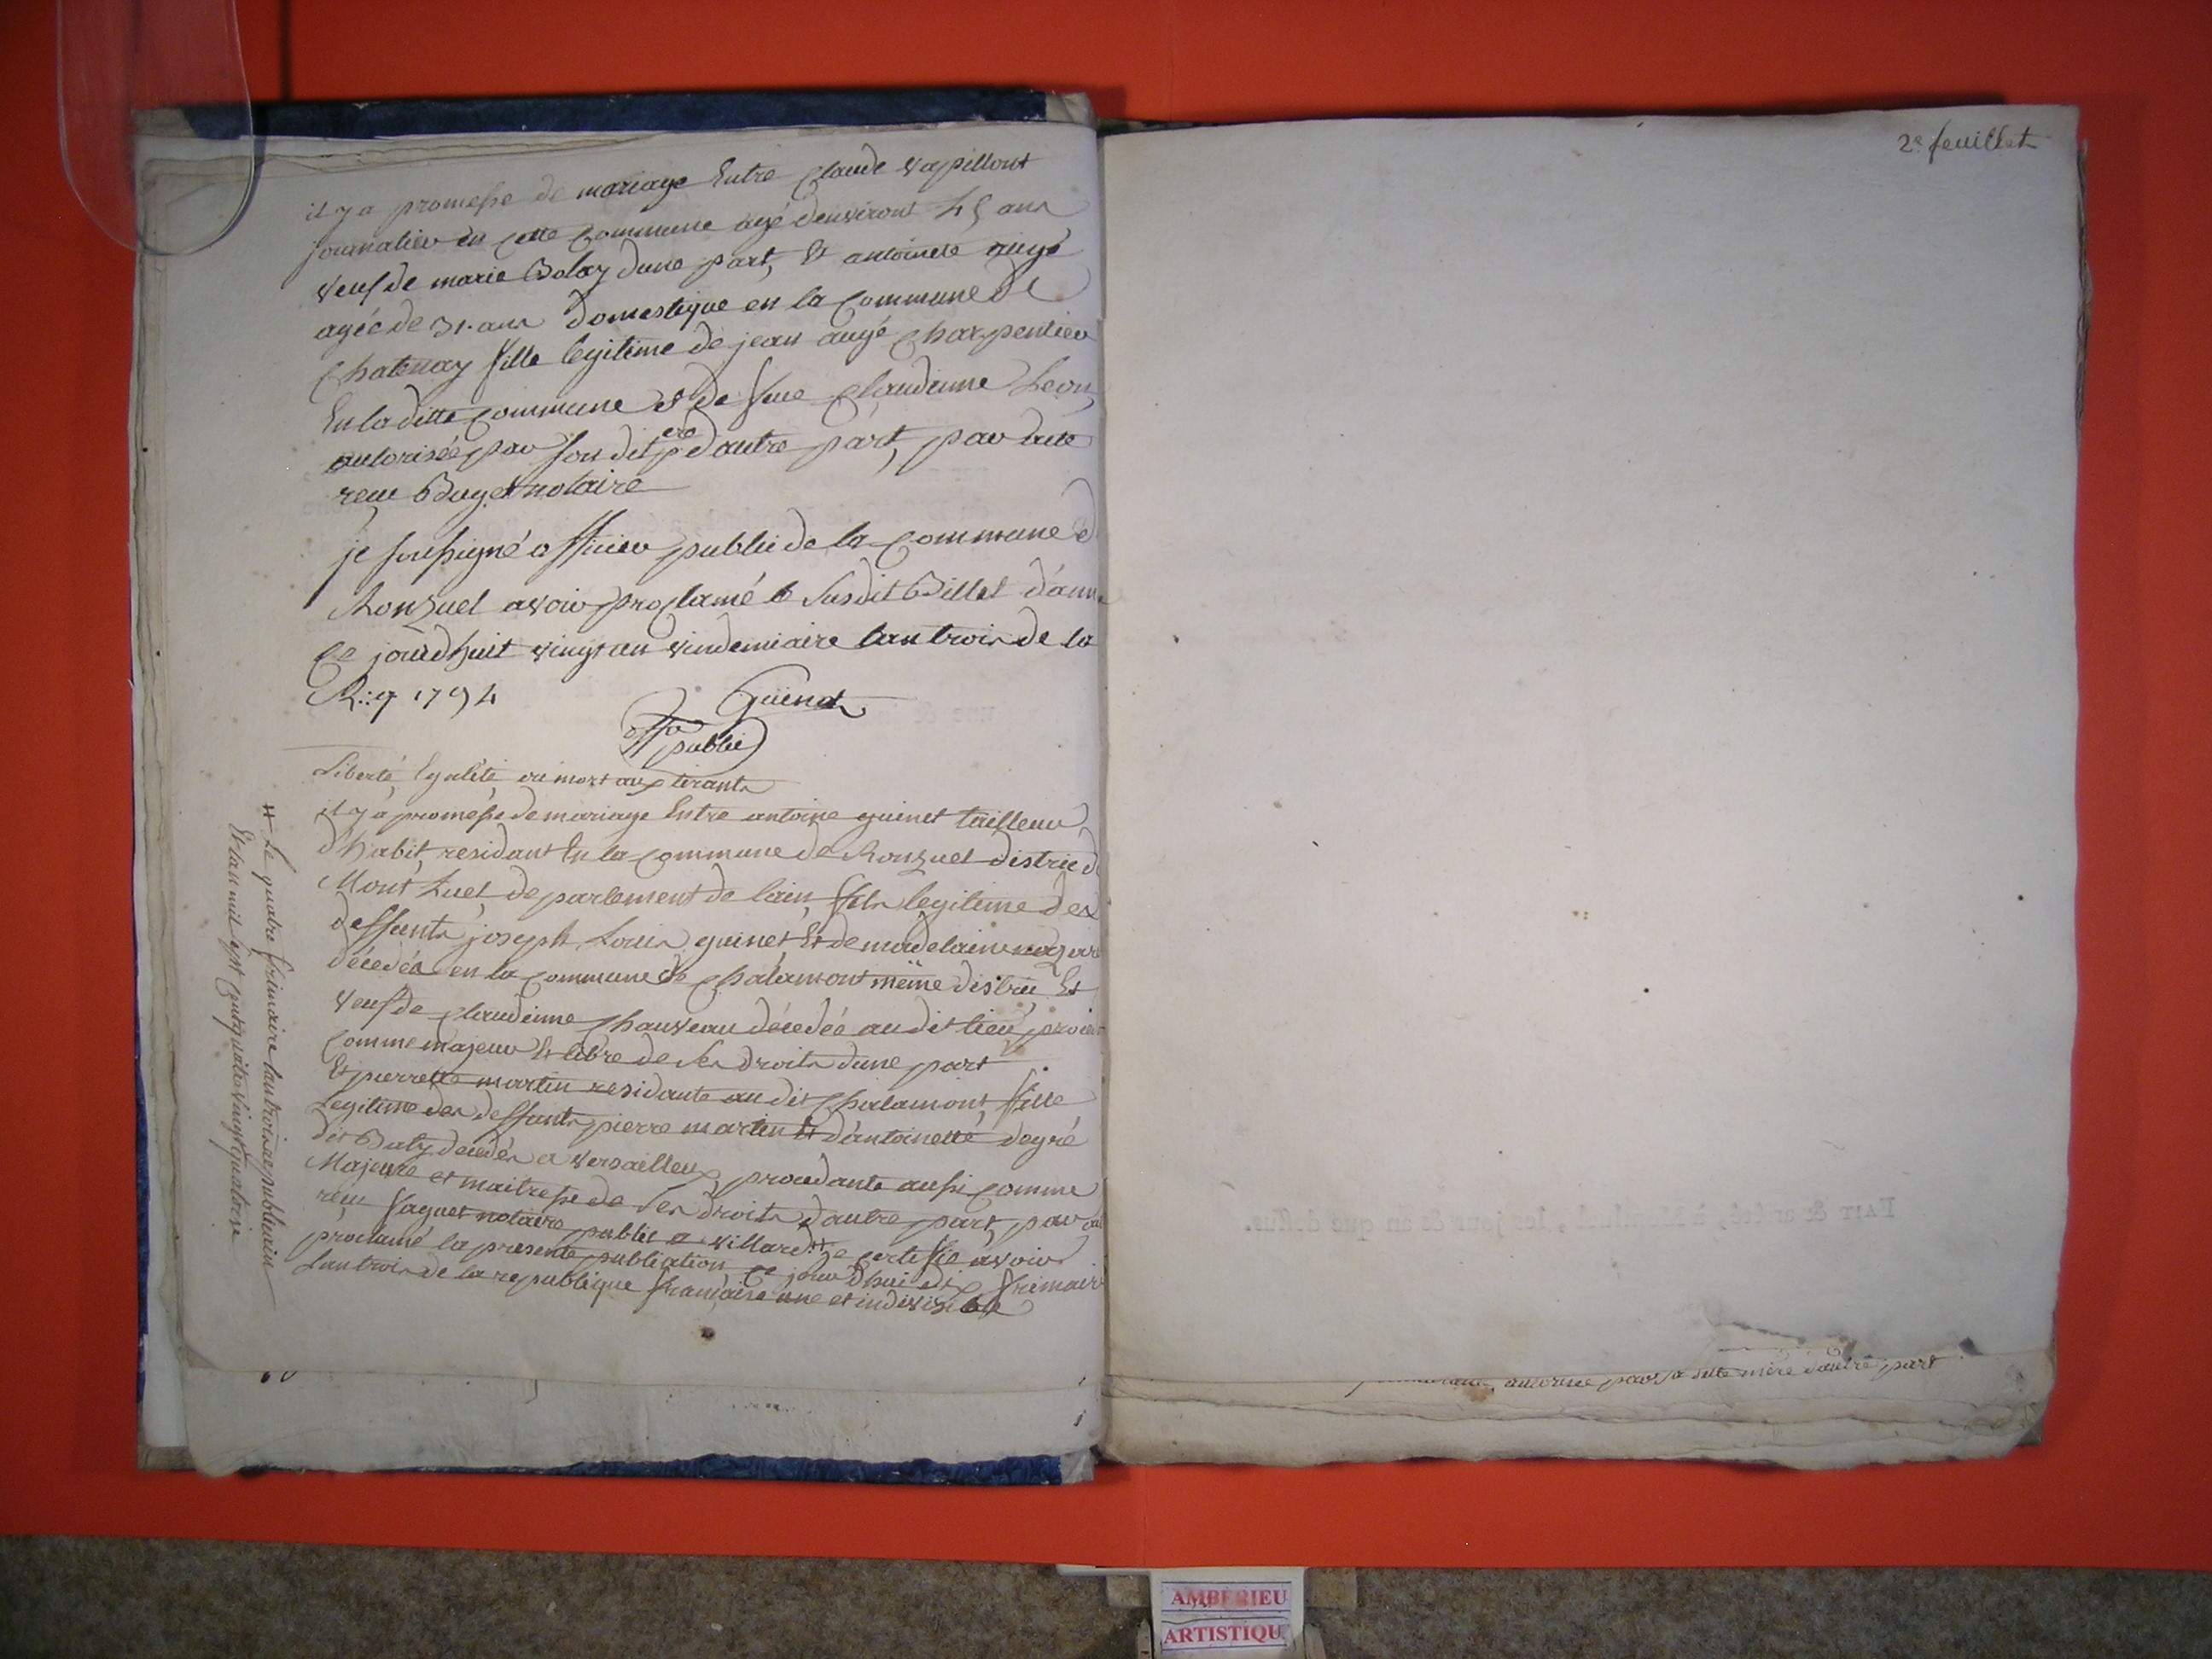 il y a promesse de mariage Entre Claude Vapillont
journalier en cette Commune agé denviront 45 ans
Veuf de marie Bolay dune part, Et antoinete augé
agée de 31. ans domestique en la Commune de
Chatenay fille legitime de jean augé Charpentier
En la ditte Commune & de feue Claudinne Leon,
autorisée par son dit pere dautre part, par acte
reçu Buget notaire
je soussigné officier public de la Commune de
Ronzuel avoir proclamé le susdit Billet d'ann
Ce jourdhuit vingt un vindemiaire lan trois de la
R. 1794
Guinet
off. public
Liberté, Egalité, ou mort aux tirants
il y a promesse de mariage Entre antoine guinet tailleur
d'habit, residant En la Commune de Ronzuel district de
Mont Luel, departement de lain, fils legitime des
deffunts joseph Louis guinet, Et de madelaine
décedés en la Commune de Chalamont même district, Et
Veuf de Claudinne Chauveau décedée au dit lieu,
Comme majeur Et libre de ses droits dune part
Et pierrette martin residante au dit Chalamont, fille
Legitime des deffunts pierre martin Et d'antoinette degré
dit Buty decedés a Versailleux, procedante aussi Comme
Majeure et maitresse de ses droits d'autre part, par acte
reçu faguet notaire public a villard. ++ je certifie avoir
proclamé la presente publication ce jour d'hui dix frimaire
Lan trois de la republique française une et indivisible
++ Le quatre frimaire lan trois republicain
Et lan mil sept cents quatre vingt quatorze
2e. feuillet
FAIT & arrêté, à Montluel, les jour & an que dessus.
autorisée par sa dite mere d'autre part
AMBERIEU
ARTISTIQU